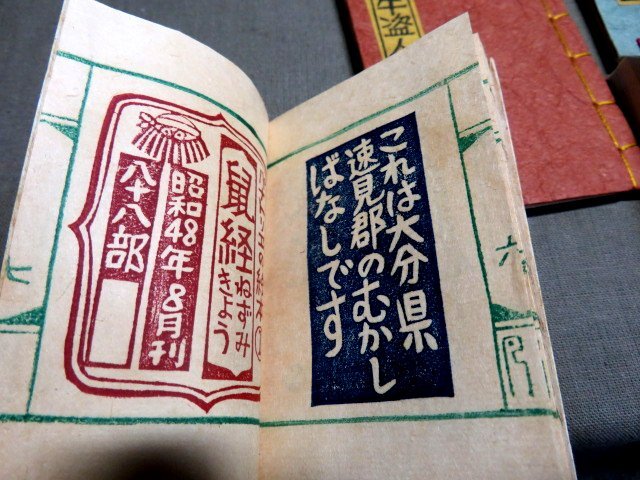 これは大分県
速見郡のむかし
ばなしです
鼠経
ねずみ
きょう
昭和48年8月刊
八十八部
六
七
盗人